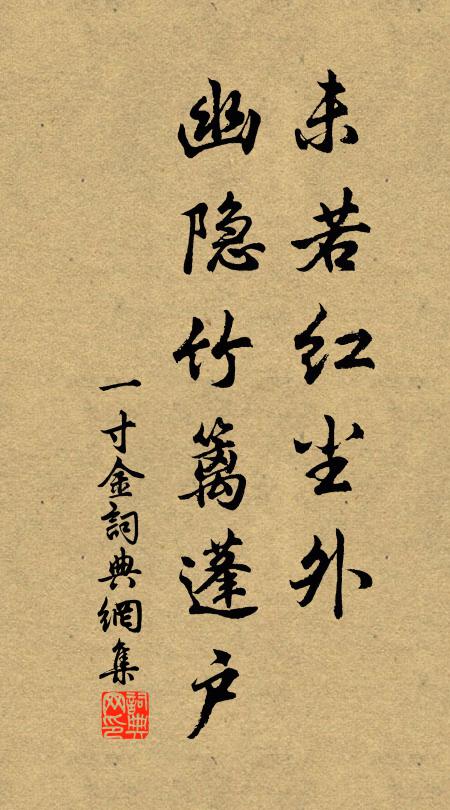 未若红尘外
幽隐竹篱蓬户
一寸金詞典網集
詞典網印